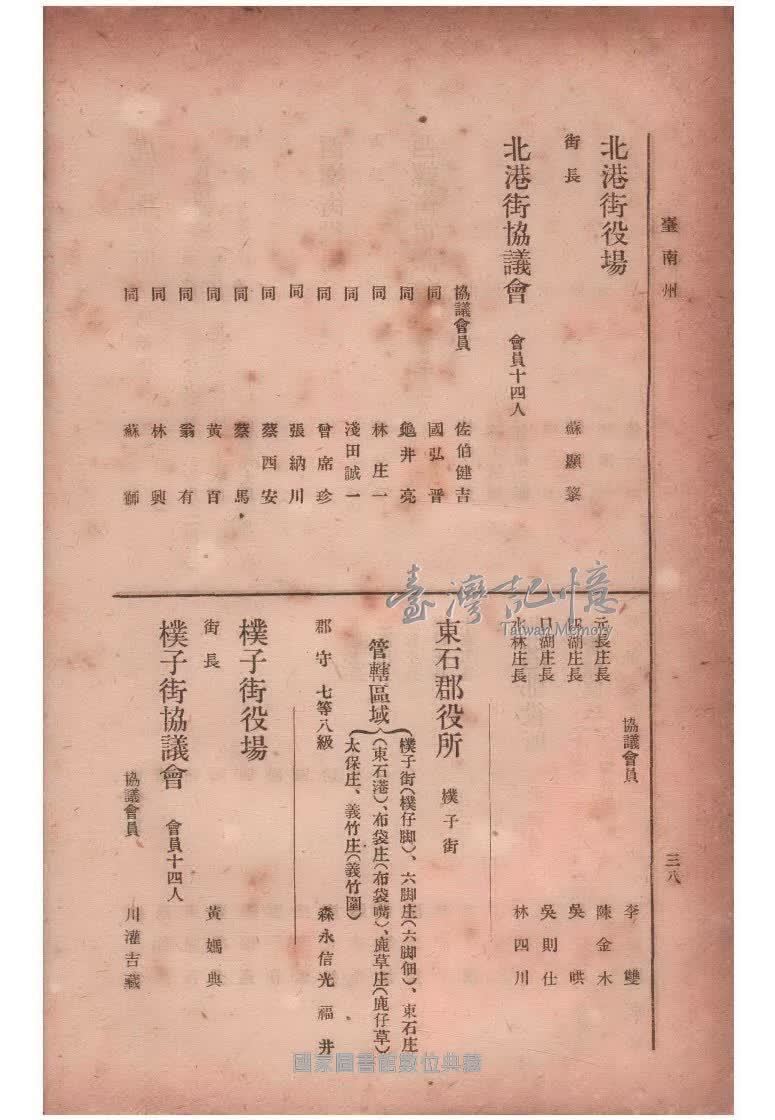 臺南州
三八
北港街役場
街長 蘇顯黎
北港街協議會 會員十四人
協議會員 佐伯健吉
同 國弘晋
同 龜井亮
同 林庄一
同 淺田誠一
同 曾席珍
同 張納川
同 蔡西安
同 蔡馬
同 黃百
同 翁有
同 林興
同 蘇獅
協議會員 李雙
元長庄長 陳金木
四湖庄長 吳
口湖庄長 吳則仕
水林庄長 林四川
東石郡役所 樸子街
管轄區域
樸子街(樸仔脚)、六脚庄(六脚佃)、東石庄
(東石港)、布袋庄(布袋嘴)、鹿草庄(鹿仔草)
太保庄、義竹庄(義竹圍)
郡守 七等八級 森永信光 福井
樸子街役場
街長 黃媽典
樸子街協議會 會員十四人
協議會員 川灌吉藏
臺灣記憶
Taiwan Memory
國家圖書館數位典藏